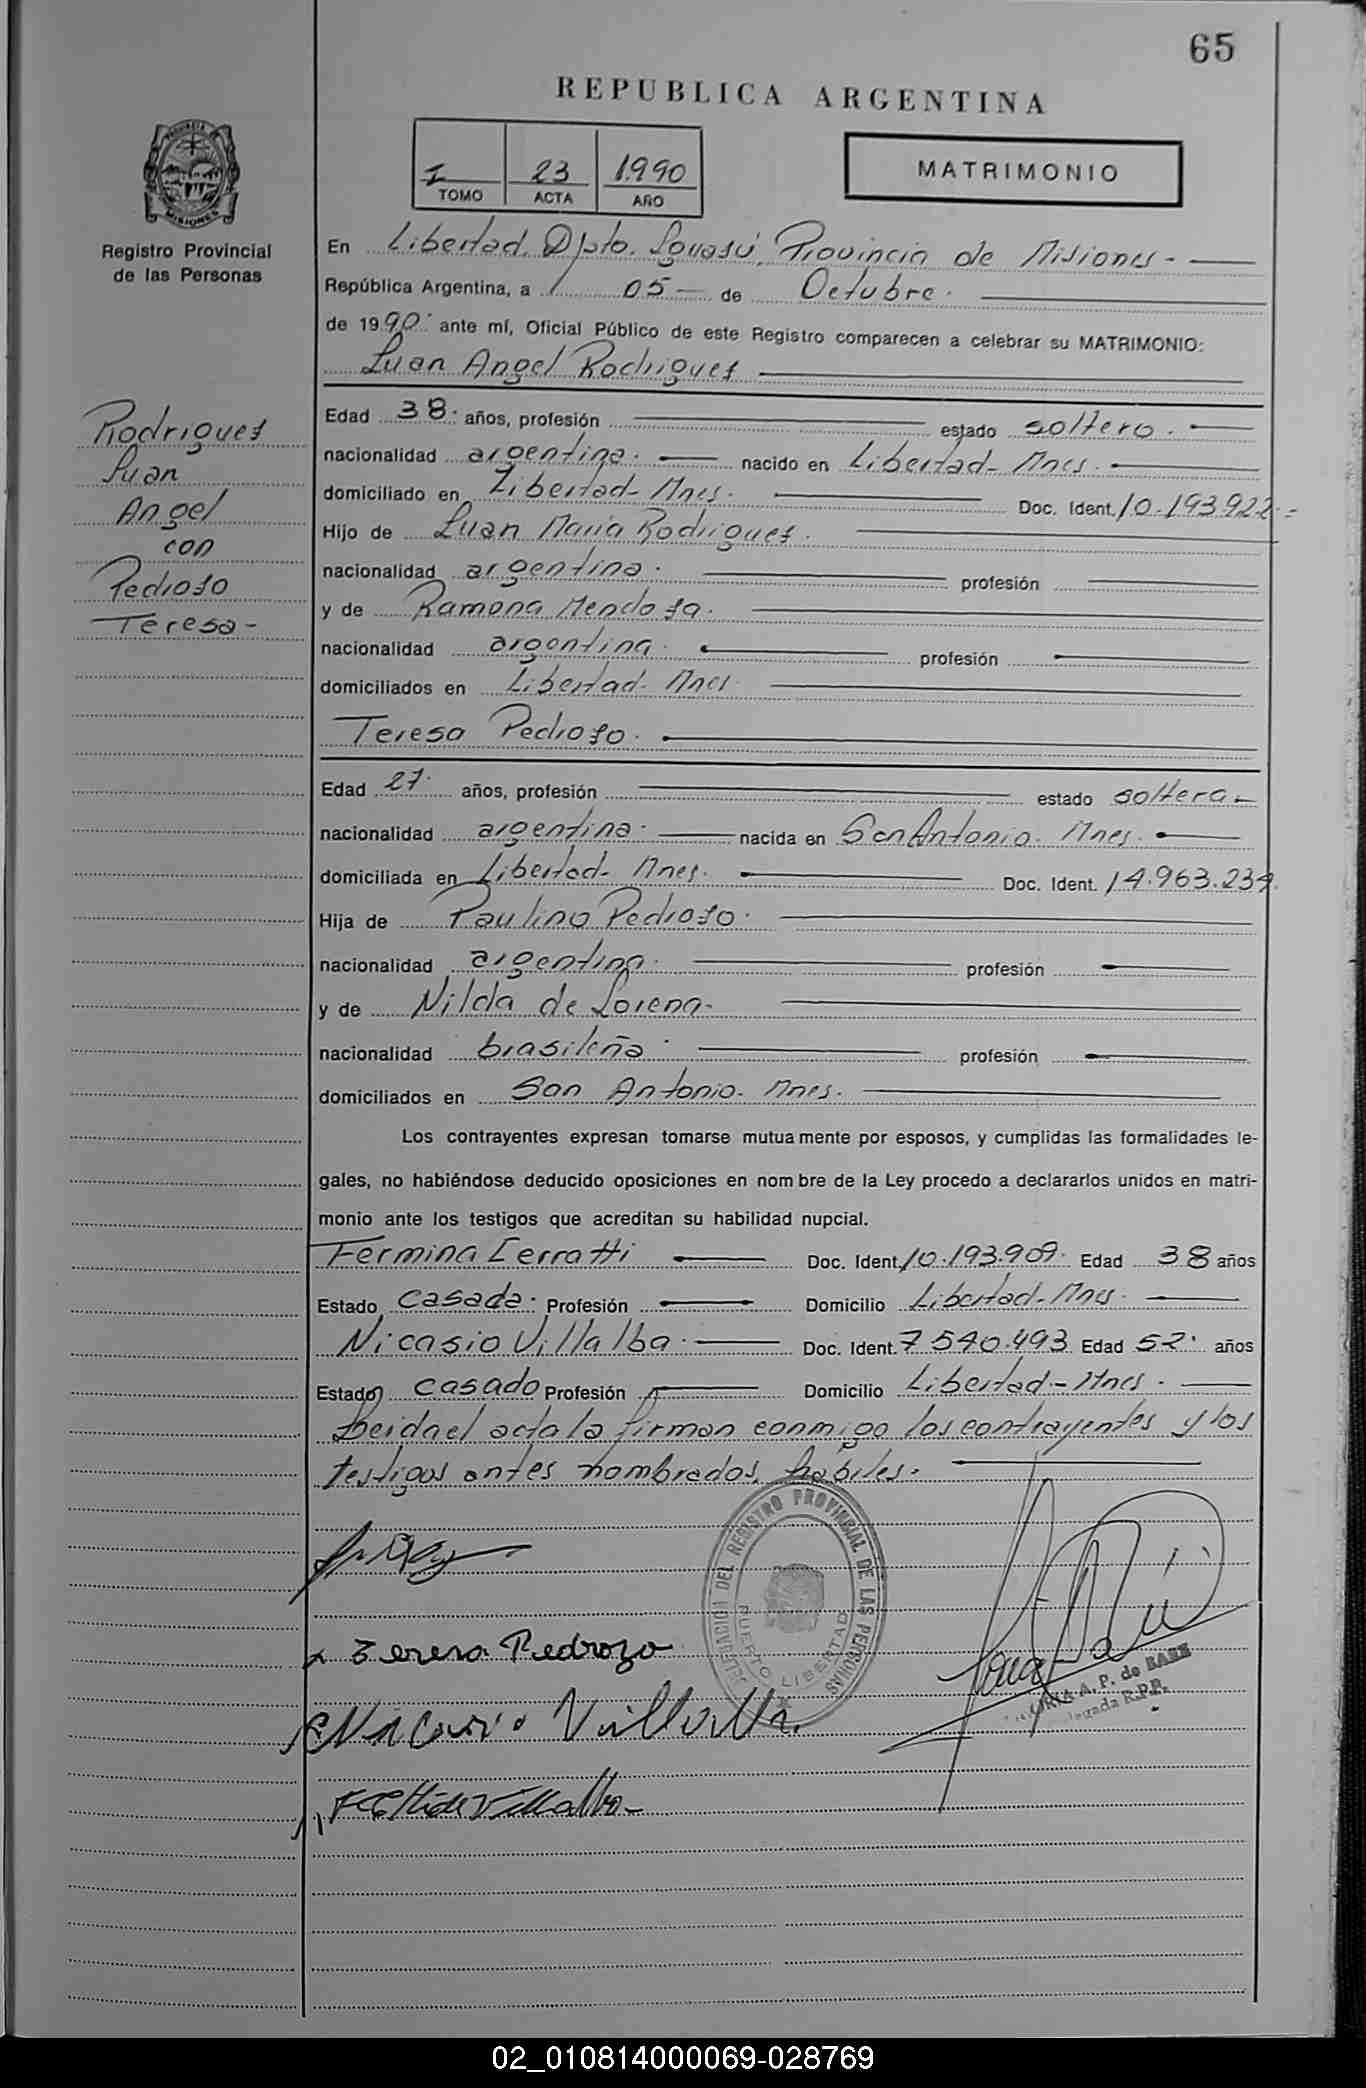 65
REPUBLICA ARGENTINA
I 23 1.990
TOMO ACTA AÑO
MATRIMONIO
PROVINCIA DE MISIONES
Registro Provincial
de las Personas
En Libertad, Dpto. Iguasú, Provincia de Misiones -
República Argentina, a 05 - de Octubre.
de 1990. ante mí, Oficial Público de este Registro comparecen a celebrar su MATRIMONIO:
Juan Angel Rodriguez
Rodriguez
Juan
Angel
con
Pedrozo
Teresa -
Edad 38. años, profesión estado soltero.
nacionalidad argentina. nacido en Libertad - Mnes.
domiciliado en Libertad - Mnes. Doc. Ident. 10.193.922. =
Hijo de Juan Maria Rodriguez.
nacionalidad argentina. profesión
y de Ramona Mendoza.
nacionalidad argentina. profesión
domiciliados en Libertad - Mnes.
Teresa Pedrozo.
Edad 27. años, profesión estado soltera -
nacionalidad argentina. nacida en San Antonio. Mnes.
domiciliada en Libertad - Mnes. Doc. Ident. 14.963.234.
Hija de Paulino Pedrozo.
nacionalidad argentina. profesión
y de Nilda de Lorena.
nacionalidad brasileña. profesión
domiciliados en San Antonio. Mnes.
Los contrayentes expresan tomarse mutuamente por esposos, y cumplidas las formalidades le-
gales, no habiéndose deducido oposiciones en nombre de la Ley procedo a declararlos unidos en matri-
monio ante los testigos que acreditan su habilidad nupcial.
Fermina Cerratti Doc. Ident. 10.193.909. Edad 38 años
Estado Casada. Profesión Domicilio Libertad - Mnes.
Nicasio Villalba. Doc. Ident. 7.540.493 Edad 52. años
Estado casado Profesión Domicilio Libertad - Mnes.
Leida el acta la firman conmigo los contrayentes y los
testigos antes nombrados, habiles.
DELEGACION DEL REGISTRO PROVINCIAL DE LAS PERSONAS
PUERTO LIBERTAD
Teresa Pedrozo
Nicasio Villalba.
de Villalba -
A. P. de BAEZ
Delegada R.P.P.
02_010814000069-028769